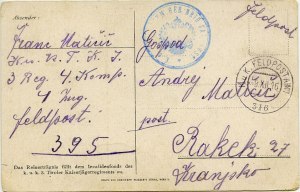 Absender:
Franz Matičič
K. u. K. T. K. J.
3 Reg 4. Komp.
4 Zug.
Feldpost.
395
Das Reinerträgnis fällt dem Invalidenfonds des
k. u. k. 2. Tiroler Kaiserjägerregiments zu.
Feldpost
Gospod
K.u.K. FELDPOSTAMT
316
Andrej
Matičič
post
Rakek 27
Kranjsko